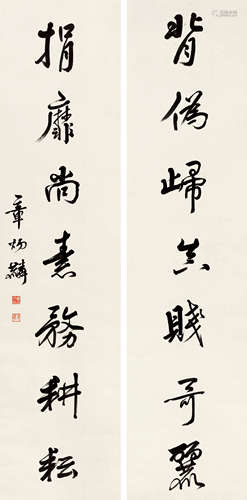 背偽歸真賤奇麗
捐靡尚素務耕耘
章炳麟